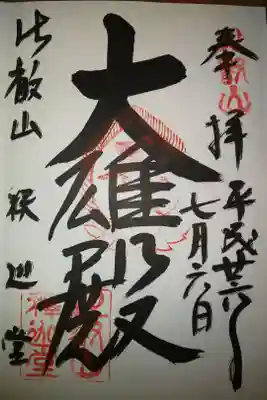 奉拝
平成廿六年
七月六日
大雄殿
比叡山 釈迦堂